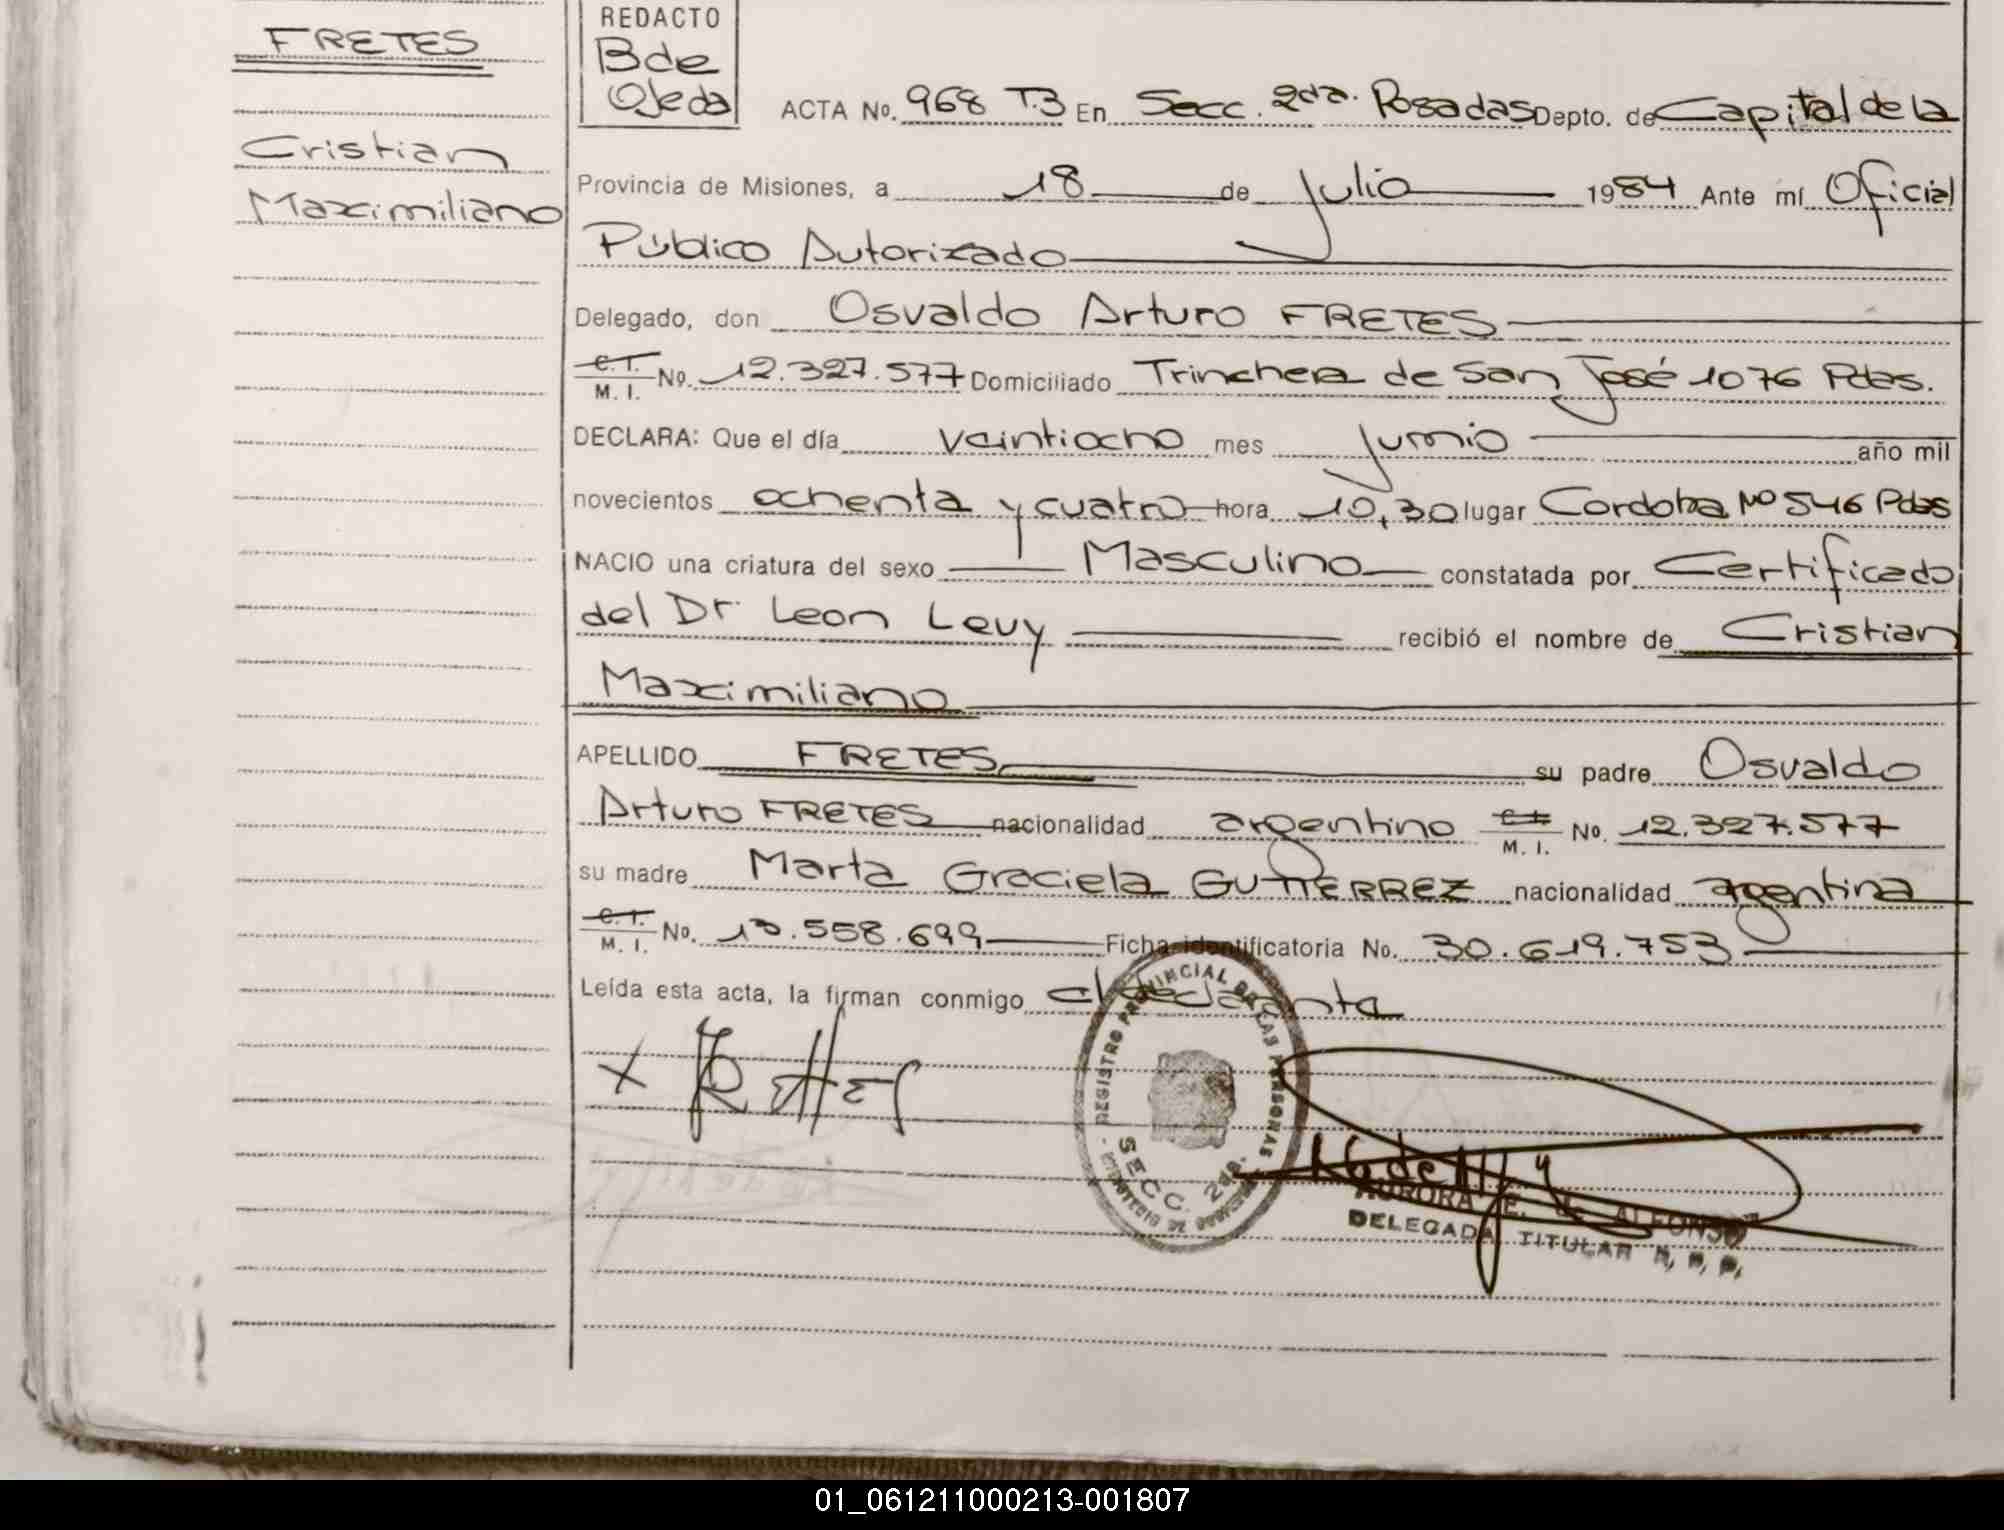 FRETES
Cristian
Maximiliano
REDACTO
Bde
Ojeda
ACTA No. 968 T.3 En Secc. 2da. Posadas Depto. de Capital de la
Provincia de Misiones, a 18 de Julio 1984 Ante mí Oficial
Público Autorizado
Delegado, don Osvaldo Arturo FRETES
C.I. M. I. No. 12.327.577 Domiciliado Trinchera de San José 1076 Pdas.
DECLARA: Que el día veintiocho mes Junio año mil
novecientos ochenta y cuatro hora 10,30 lugar Cordoba Nº 546 Pdas
NACIO una criatura del sexo Masculino constatada por Certificado
del Dr. Leon Levy recibió el nombre de Cristian
Maximiliano
APELLIDO FRETES su padre Osvaldo
Arturo FRETES nacionalidad argentino C.I. M. I. No. 12.327.577
su madre Marta Graciela GUTIERREZ nacionalidad argentina
C.I. M. I. No. 13.558.699 Ficha identificatoria No. 30.619.753
Leída esta acta, la firman conmigo
REGISTRO PROVINCIAL DE LAS PERSONAS
SECC. 2da.
AURORA E. DE ALFONSO
DELEGADA TITULAR R. P. P.
01_061211000213-001807